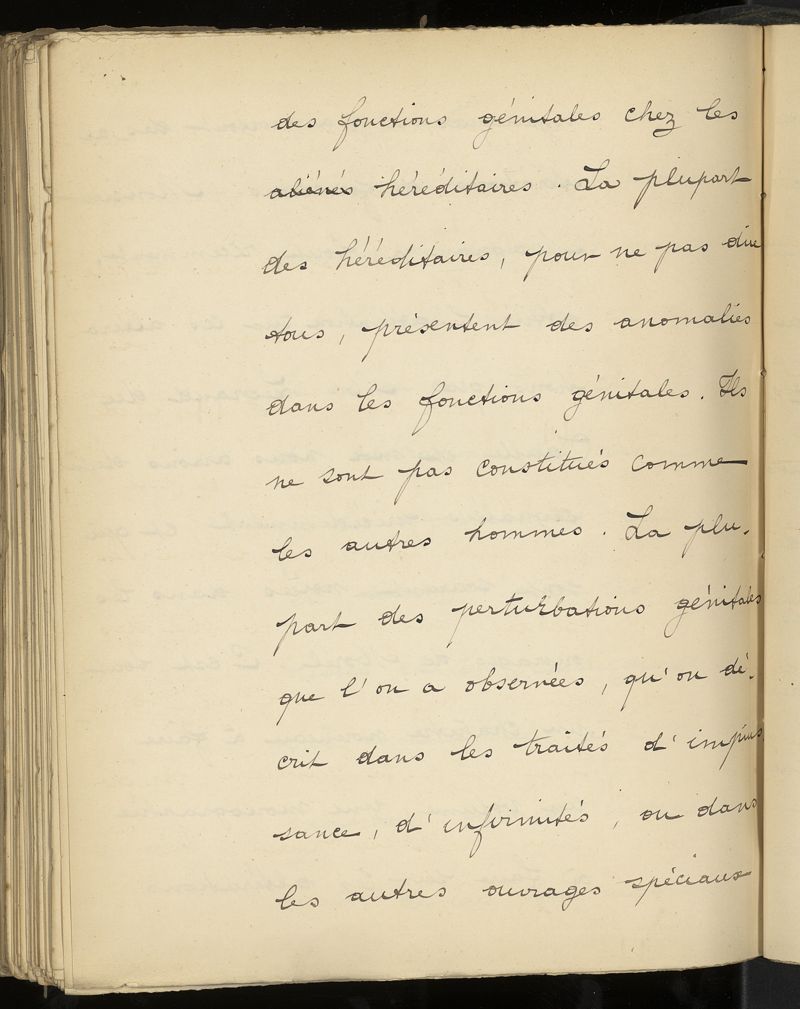 des fonctions génitales chez les
aliénés héréditaires. La plupart
des héréditaires, pour ne pas dire
tous, présentent des anomalies
dans les fonctions génitales. Ils
ne sont pas constitués comme
les autres hommes. La plu-
part des perturbations génitales
que l'on a observées, qu'on dé-
crit dans les traités d'impuis
sance, d'infirmités, ou dans
les autres ouvrages spéciaux